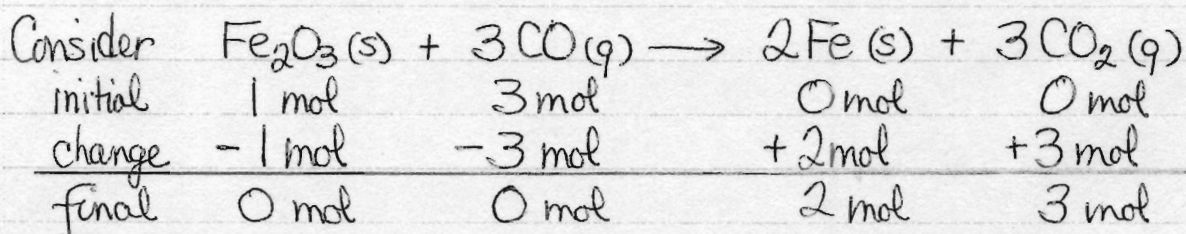 Consider Fe₂O₃(s) + 3CO(g) → 2Fe(s) + 3CO₂(g)
initial 1 mol 3 mol 0 mol 0 mol
change -1 mol -3 mol +2 mol +3 mol
final 0 mol 0 mol 2 mol 3 mol